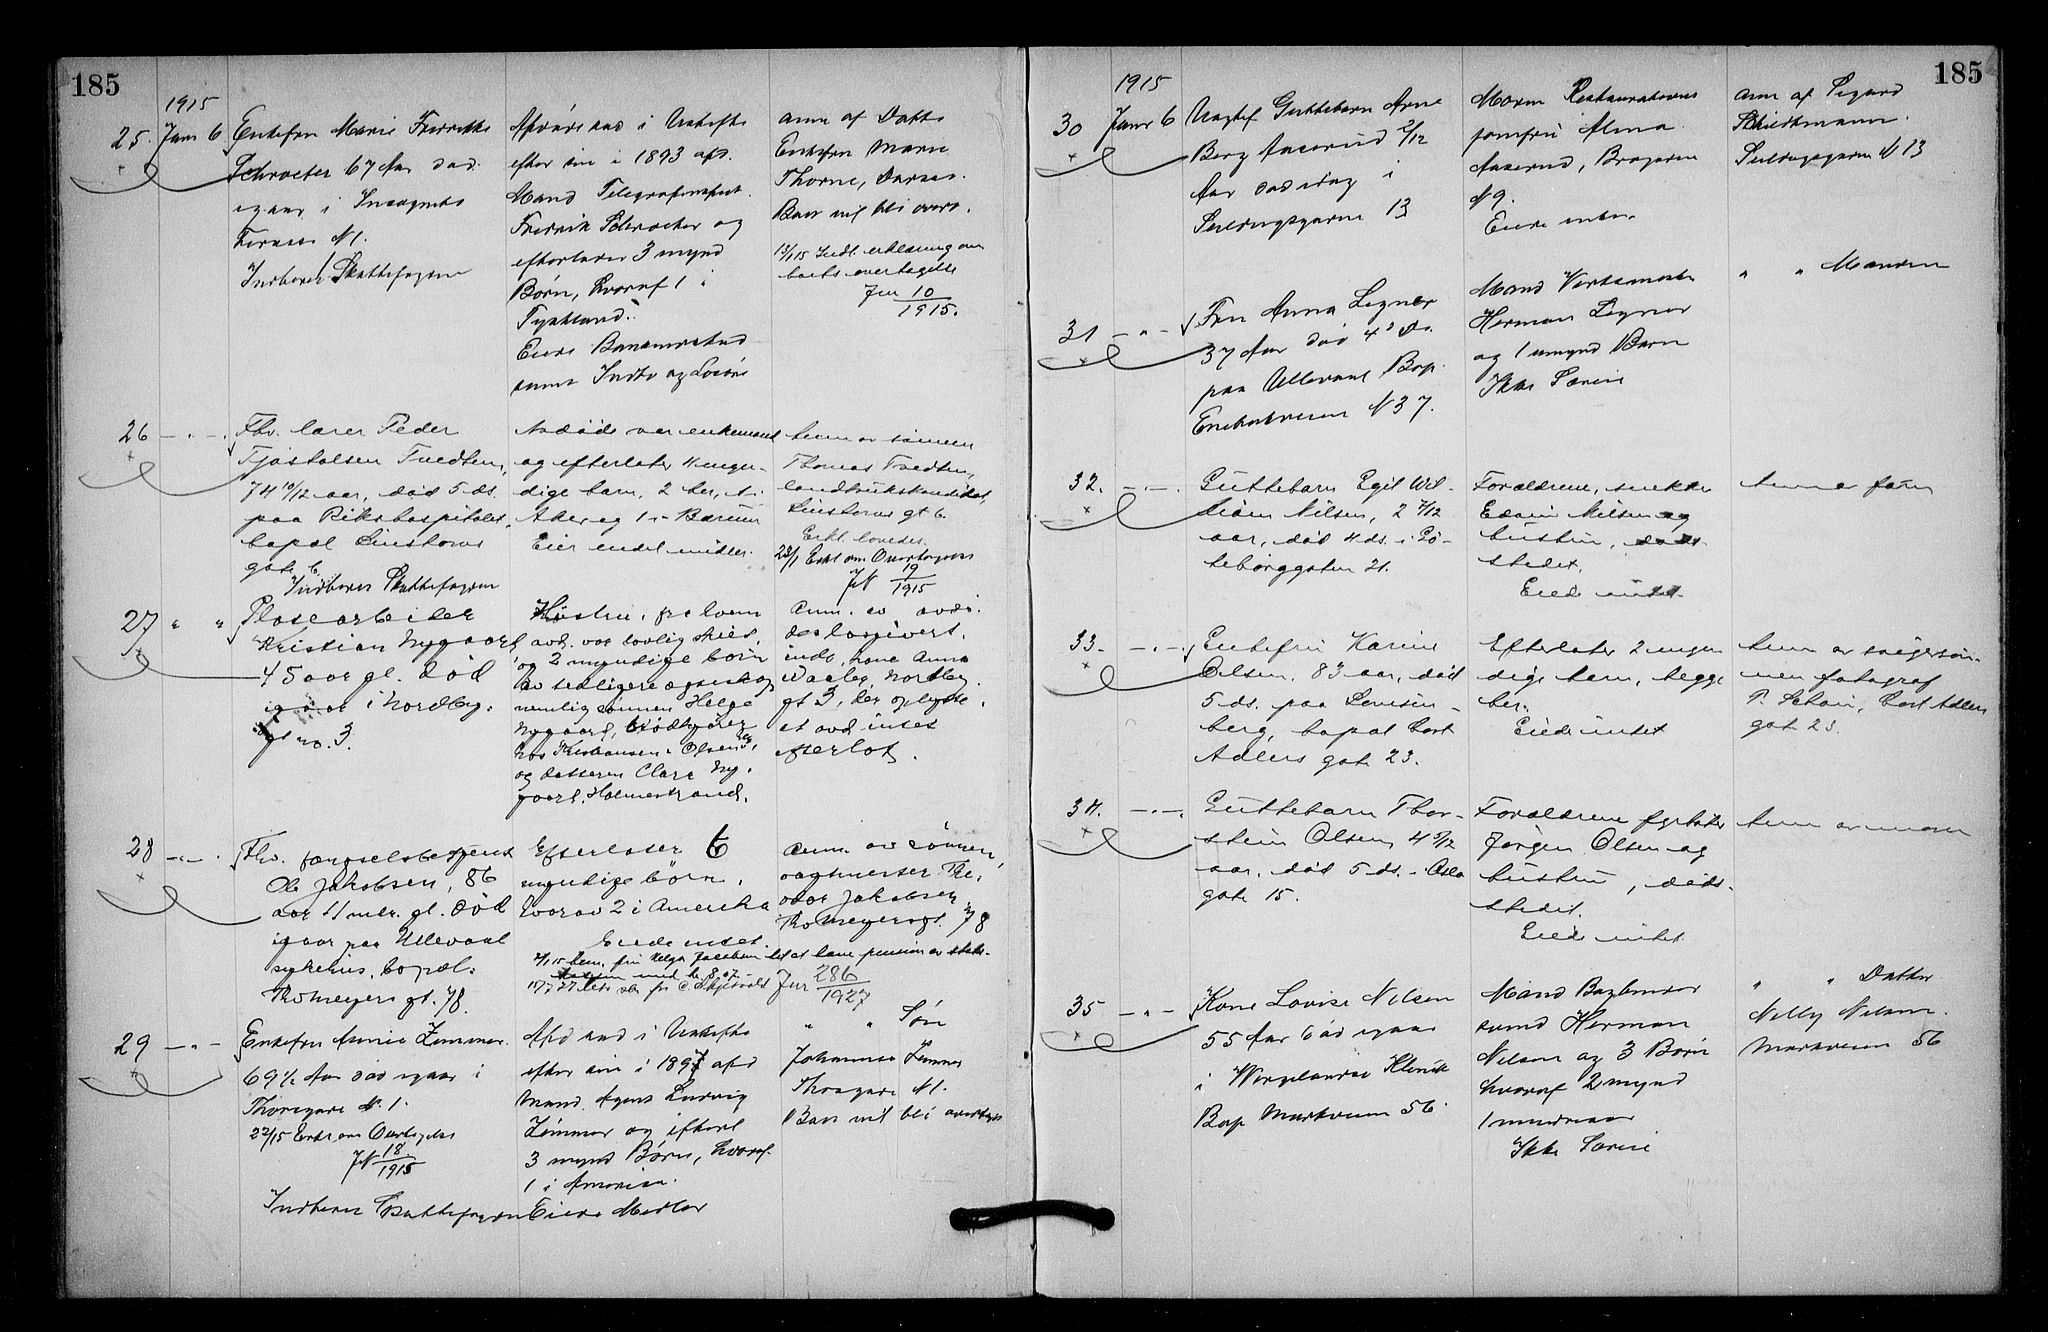 185
1915
25. Janr 6 Enkefru Marie Fredrikke
Schroeter 67 Aar død
igaar i Incognito
Terrasse N 1.
Indberet Skattefogden
Afdøde sad i Uskifte
efter sin i 1893 afd.
Mand Telegrafinspekt.
Fredrik Schroeter og
efterlader 3 mynd
Børn, hvoraf 1 i
Tyskland.
Eiede
samt Indbo og Løsøre
Anm af Datter
Enkefru Marie
Thorne, Dersos.
Boet vil bli overt.
13/1 15 Indl. erklæring om
boets overtagelse
Jnr 10/1915.
26 — " — Fhv. lærer Peder
Tjøstolsen Tvedten,
74 10/12 aar, død 5 ds.
paa Rikshospitalet,
bopæl Linstows
gate 6
Indberet Skattefogden
Avdøde var enkemand
og efterlater 4 myn-
dige barn, 2 her, 1 i
Aker og 1 i Bærum
Eier endel midler.
Anm av sønnen
Thomas Tvedten,
landbrukskandidat,
Linstows gt 6.
Erkl. lovedes.
23/1 Erkl om Overtagelse
JN 19/1915
27 " " Glasearbeider
Kristian Nygaard
45 aar gl. død
igaar i Nordby-
gt no. 3.
Hustru, fra hvem
avd. var lovlig skilt,
og 2 myndige børn
av tidligere egteskap
nemlig sønnen Helge
Nygaard, brødkjører
hos Kristiansen & Olsen, her,
og datteren Clara Ny-
gaard, Holmestrand.
Anm. av avdø-
des logivert-
inde, kone Anna
Waaler, Nordby-
gt 3, der oplyste
at avd intet
efterlot.
28 — " — Fhv. fængselsbetjent
Ole Jakobsen, 86
aar 11 mdr. gl. død
igaar paa Ullevaal
sykehus, bopæl:
Th. Meyers gt. 78.
Efterlater 6
myndige børn,
hvorav 2 i Amerika
Eiede intet.
Anm. av sønnen,
vagtmester The-
odor Jakobsen
Th. Meyers gt. 78
Jnr 286/1927
29 — " — Enkefru Annie Zimmer
69 1/2 Aar død igaar i
Thorsgade N. 1.
22/1 15 Erkl om Overtagelse
JN 18/1915
Indberet Skattefogden
Afd sad i Uskifte
efter sin i 1897 afd
Mand Agent Ludvig
Zimmer og efterl
3 mynd Børn, hvoraf
1 i Amerika.
Eiede Midler
" " Søn
Johannes Zimmer
Thorsgade N 1.
Boet vil bli overtaget
185
1915
30 Janr 6 Uægtef Guttebarn Arne
Berg Aaserud 2/12
Aar død idag i
Seilduksgaden 13
Moren Restaurations
jomfru Alma
Aaserud, Brogaden
N 9.
Eiede intet.
Anm af Sigurd
Schiedtmann.
Seilduksgaden N 13
31 — " — Fru Anna Legner
37 Aar død 4 ds.
paa Ullevaal Bop.
Enebakveien N 37.
Mand Verksmester
Herman Legner
og 1 umynd Barn
Ikke Særeie
" " Manden
32. — " — Guttebarn Egil Wil-
liam Nilsen, 2 7/12
aar, død 4 ds. i Gø-
teborggaten 21.
Forældrene, snekker
Edvin Nilsen og
hustru, døds-
stedet.
Eiede intet
Anm av faren
33. — " — Enkefru Karine
Olsen, 83 aar, død
5 ds. paa Lovisen-
berg, bopæl Cort
Adlers gate 23.
Efterlater 2 myn
dige barn, begge
her.
Eiede intet
Anm av svigersøn-
nen fotograf
P. Schøin, Cort Adlers
gate 23.
34. — " — Guttebarn Thor-
stein Olsen, 4 5/12
aar, død 5 ds. i Oslo
gate 15.
Forældrene fyrbøter
Jørgen Olsen og
hustru, døds-
stedet.
Eiede intet
Anm av moren
35 — " — Kone Lovise Nilsen
55 Aar død igaar
i Vergelandse Klinik
Bop Markveien 56
Mand
Herman
Nilsen og 3 Børn
hvoraf 2 mynd
1 mindreaar
Ikke Særeie
" " Datter
Nelly Nilsen
Markveien 56